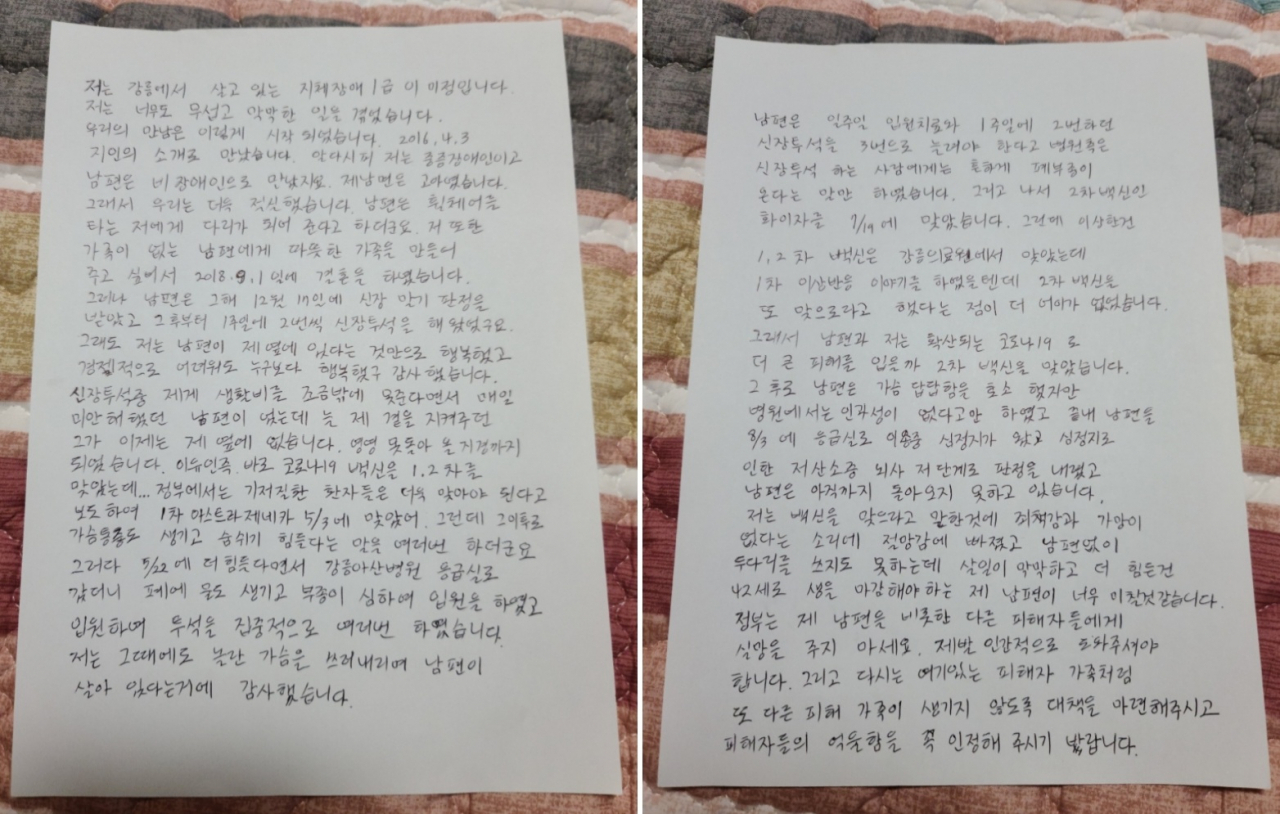 저는 강릉에서 살고 있는 지체장애 1급 이미정입니다.
저는 너무도 무섭고 막막한 일을 겪었습니다.
우리의 만남은 이렇게 시작 되었습니다. 2016.4.3
지인의 소개로 만났습니다. 아다시피 저는 중증장애인이고
남편은 비장애인으로 만났지요. 제남편은 고아였습니다.
그래서 우리는 더욱 적신했습니다. 남편은 휠체어를
타는 저에게 다리가 되어 준다고 하더군요. 저 또한
가족이 없는 남편에게 따뜻한 가족을 만들어
주고 싶어서 2018.9.1일에 결혼을 하였습니다.
그러나 남편은 그해 12월 17일에 신장 말기 판정을
받았고 그후부터 1주일에 2번씩 신장투석을 해 왔었구요.
그래도 저는 남편이 제 옆에 있다는 것만으로 행복했고
경젤적으로 어려워도 누구보다 행복했구 감사 했습니다.
신장투석중 제게 생활비를 조금밖에 못준다면서 매일
미안해 했던 남편이 었는데 늘 제 곁을 지켜주던
그가 이제는 제 옆에 없습니다. 영영 못돌아 올 지경까지
되었습니다. 이유인즉. 바로 코로나19 백신을 1.2차를
맞았는데... 정부에서는 기저질환 환자들은 더욱 맞아야 된다고
보도하여 1차 아스트라제네카 5/3에 맞았어. 그런데 그이후로
가슴통증도 생기고 숨쉬기 힘들다는 말을 여러번 하더군요
그러다 5/22에 더 힘들다면서 강릉아산병원 응급실로
갔더니 폐에 물도 생기고 부종이 심하여 입원을 하였고
입원하여 투석을 집중적으로 여러번 하였습니다.
저는 그때에도 놀란 가슴을 쓰러내리며 남편이
살아 있다는거에 감사했습니다.
남편은 일주일 입원치료와 1주일에 2번하던
신장투석을 3번으로 늘려야 한다고 병원측은
신장투석 하는 사람에게는 흔하게 폐부종이
온다는 말만 하였습니다. 그리고 나서 2차백신인
화이자를 7/19에 맞았습니다. 그런데 이상한건
1,2차 백신은 강릉의료원에서 맞았는데
1차 이상반응 이야기를 하였을텐데 2차 백신을
또 맞으로라고 했다는 점이 더 어이가 없었습니다.
그래서 남편과 저는 확산되는 코로나19 로
더 큰 피해를 입을까 2차 백신을 맞았습니다.
그 후로 남편은 가슴 답답함을 호소 했지만
병원에서는 인과성이 없다고만 하였고 끝내 남편을
8/3에 응급실로 이송중 심정지가 왔고 심정지로
인한 저산소증 뇌사 저 단계로 판정을 내렸고
남편은 아직까지 돌아오지 못하고 있습니다.
저는 백신을 맞으라고 말한것에 죄책감과 가망이
없다는 소리에 절망감에 빠졌고 남편없이
두다리를 쓰지도 못하는데 살일이 막막하고 더 힘든건
42세로 생을 마감해야하는 제 남편이 너무 미칠것같습니다.
정부는 제 남편을 비롯한 다른 피해자들에게
실망을 주지 마세요. 제발 인간적으로 도와주셔야
합니다. 그리고 다시는 여기있는 피해자 가족처럼
또 다른 피해 가족이 생기지 않도록 대책을 마련해주시고
피해자들의 억울함을 꼭 인정해 주시기 바랍니다.